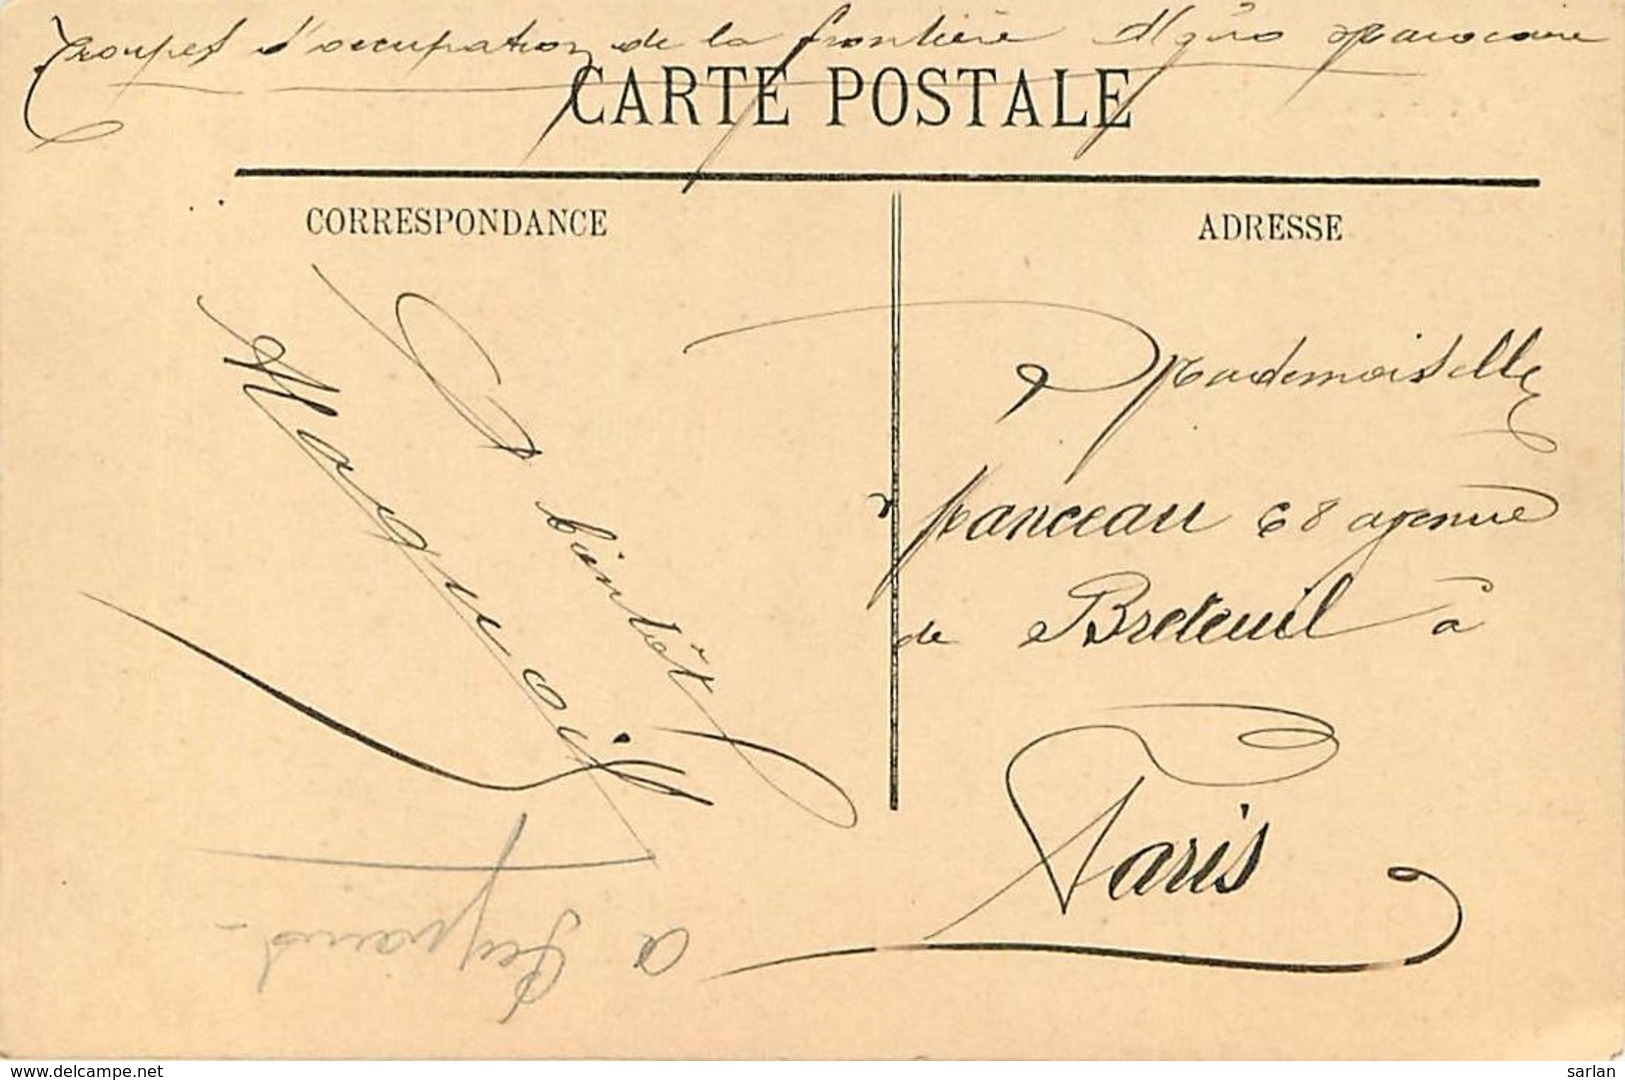 Troupes d'occupation de la frontière Algéro Marocaine
CARTE POSTALE
CORRESPONDANCE
ADRESSE
A bientôt
Mademoiselle
Manceau 68 avenue
de Breteuil à
Paris
www.delcampe.net
sarlan